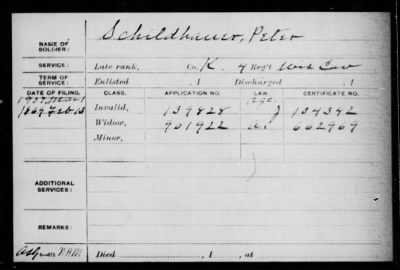 NAME OF SOLDIER: Schildhauer, Peter
SERVICE: Late rank, Co. K. 4 Reg't Wis Cav
TERM OF SERVICE: Enlisted , 1 Discharged , 1
DATE OF FILING. CLASS. APPLICATION NO. LAW. CERTIFICATE NO.
Invalid, 139828 134342
1869 Feb 13 Widow, 901922 a. 662969
Minor,
ADDITIONAL SERVICES:
REMARKS:
Died , 1 , at